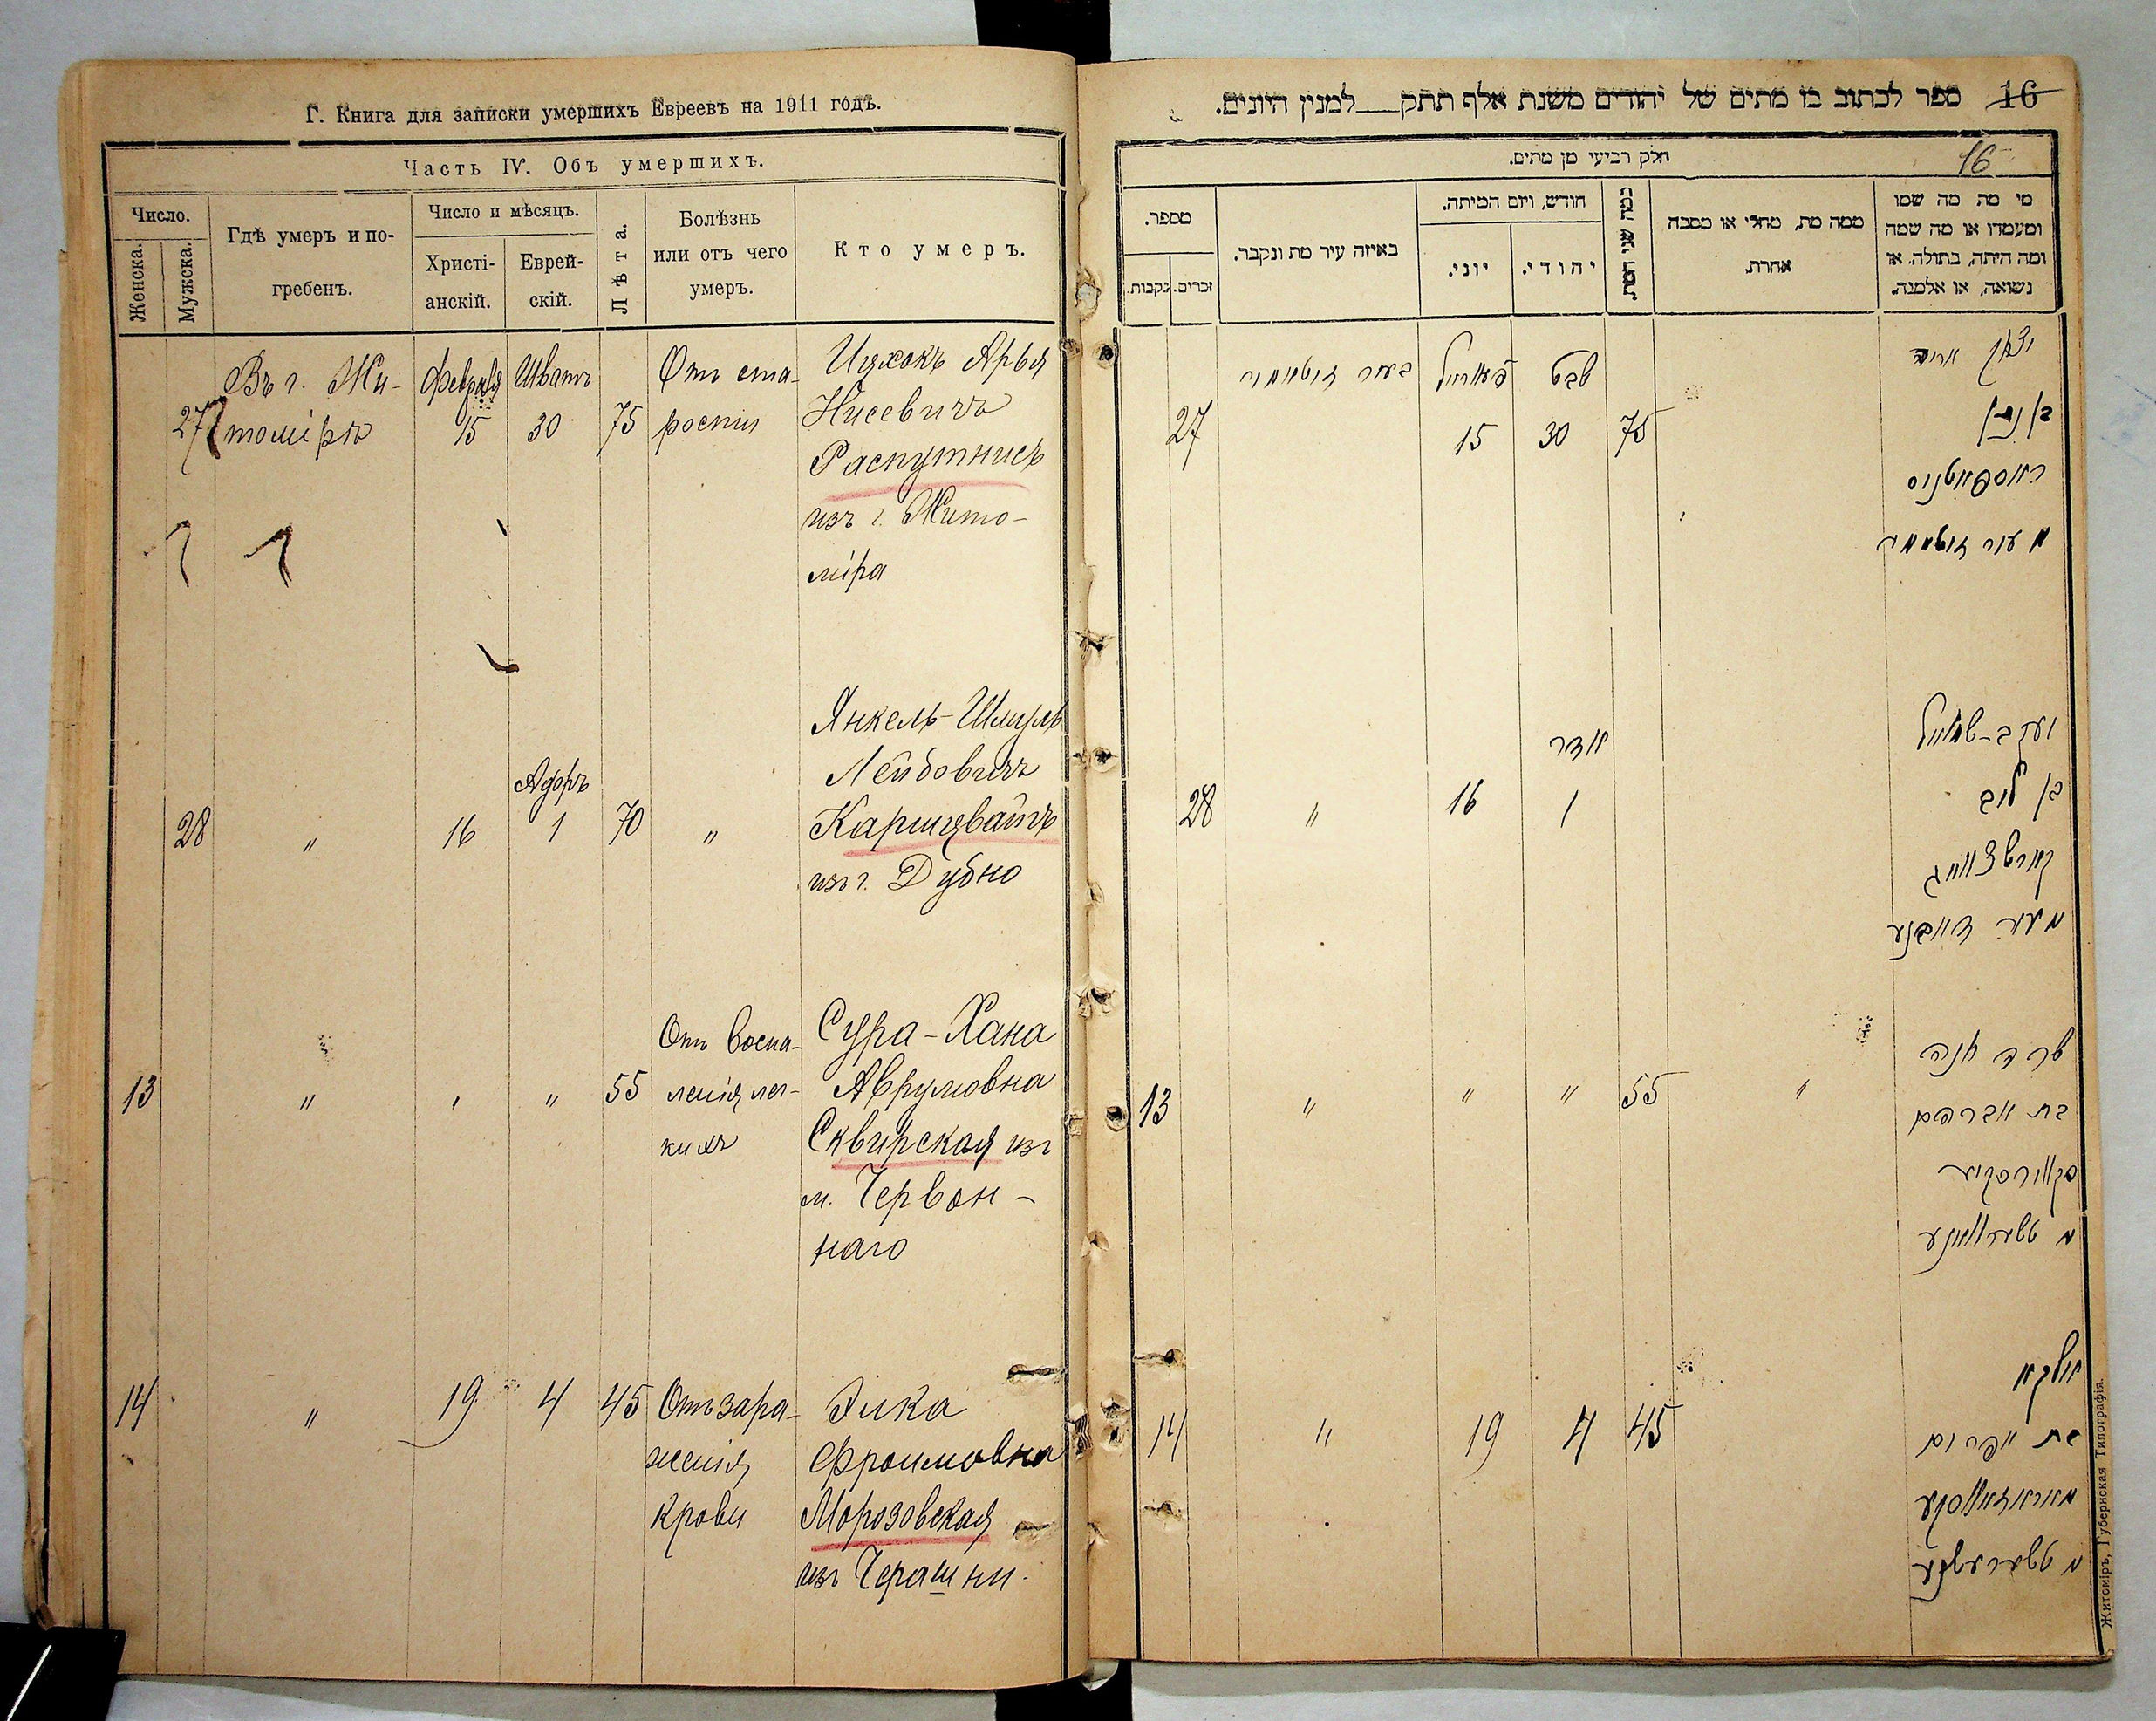 Г. Книга для записки умершихъ Евреевъ на 1911 годъ.
Часть IV. Объ умершихъ.
Число.
Женска.
Мужска.
Гдѣ умеръ и по-
гребенъ.
Число и мѣсяцъ.
Христі-
анскій.
Еврей-
скій.
Лѣта.
Болѣзнь
или отъ чего
умеръ.
Кто умеръ.
27
Въ г. Жи-
томірѣ
февраля
15
Шватъ
30
75
Отъ ста-
рости
Ицхокъ Арья
Нисевичъ
Распутнисъ
изъ г. Жито-
міра
28
"
16
Адоръ
1
70
"
Янкель-Шмуль
Лейбовичъ
Каршцвайгъ
изъ г. Дубно
13
"
"
"
55
Отъ воспа-
ленія лег-
кихъ
Сура-Хана
Аврумовна
Сквирская изъ
м. Червон-
наго
14
"
19
4
45
Отъ зара-
женія
крови
Элка
Фроимовна
Морозовская
изъ Черашни.
16 ספר לכתוב בו מתים של יהודים משנת אלף תתק למנין היונים.
16
חלק רביעי מן מתים.
מי מת מה שמו
ומעמדו או מה שמה
ומה היתה, בתולה, או
נשואה, או אלמנה.
ממה מת, מחלי או מסבה
אחרת.
כמה שני המת.
חודש, ויום המיתה.
יהודי.
יוני.
באיזה עיר מת ונקבר.
מספר.
זכרים.
נקבות.
יצחק אריה
בן ניסן
ראספוטניס
מעיר זיטאמיר
75
שבט
30
פעווראל
15
בעיר זיטאמיר
27
יעקב-שמואל
בן ליב
קארשצווייג
מעיר דובנע
אדר
1
16
"
28
שרה חנה
בת אברהם
סקווירסקיא
מ טשערוואנע
"
55
"
"
"
13
אלקא
בת אפרים
מאראזאווסקע
מ טשעראשנע
45
4
19
"
14
Житоміръ, Губернская Типографія.